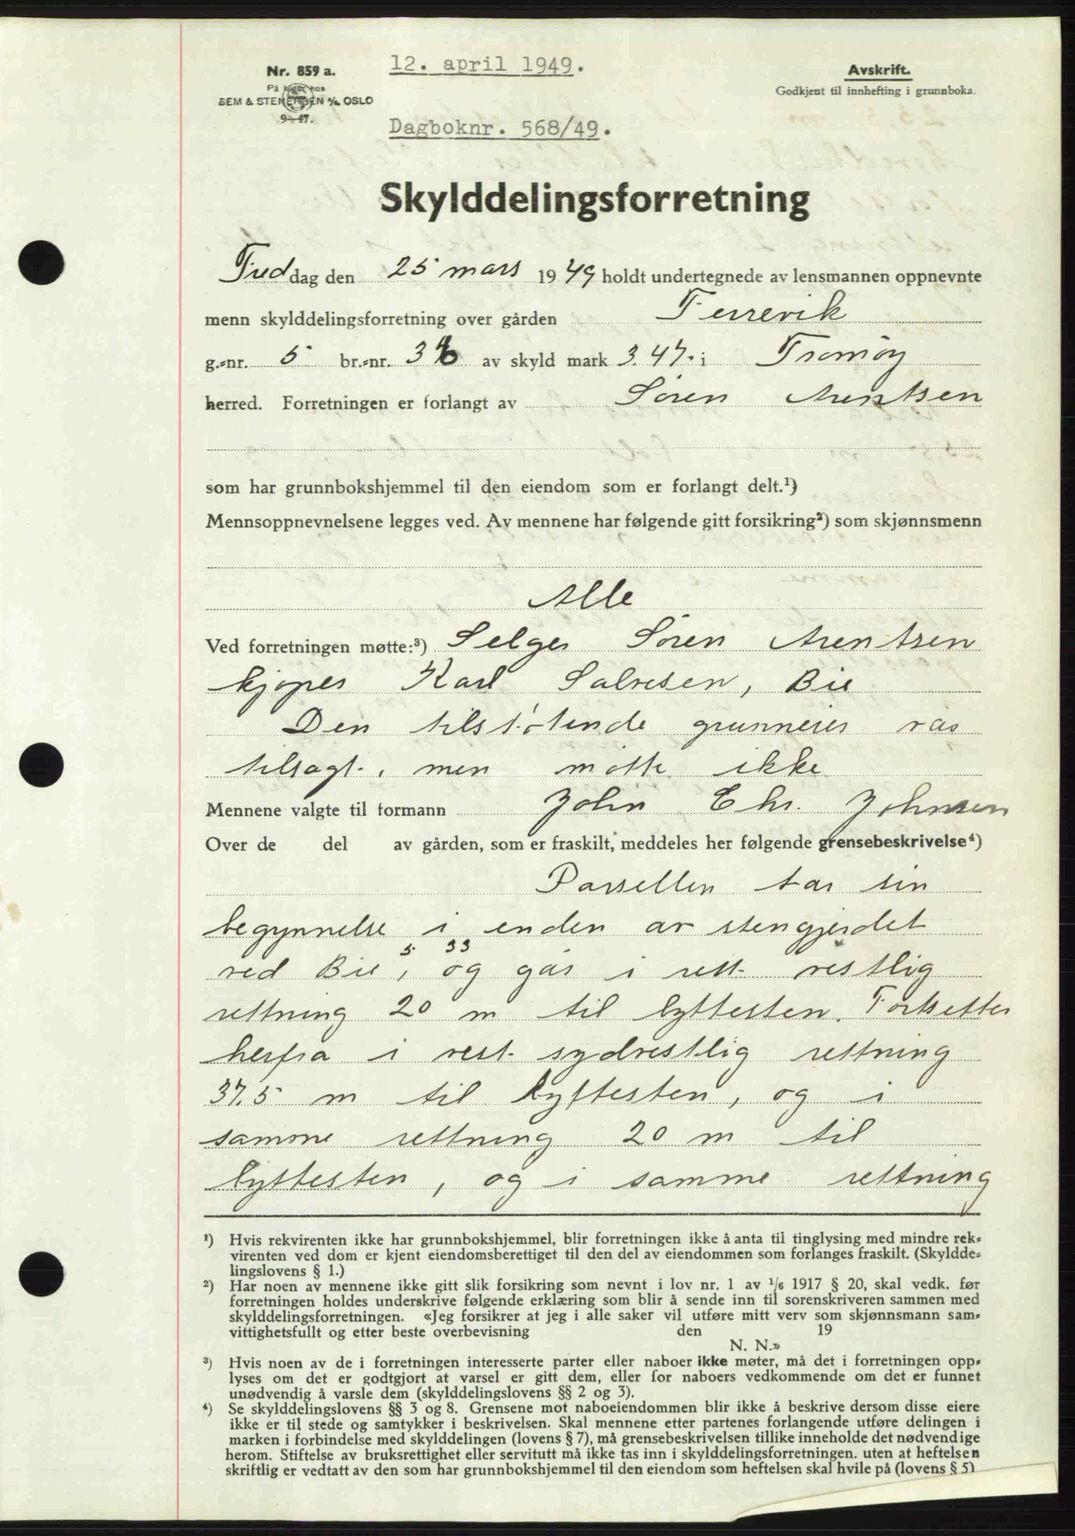 Nr. 859 a.
På lager hos
SEM & STENERSEN A/S, OSLO
9-47.
12. april 1949.
Dagboknr. 568/49.
Avskrift.
Godkjent til innhefting i grunnboka.
Skylddelingsforretning
Freddag den 25 mars 1949 holdt undertegnede av lensmannen oppnevnte
menn skylddelingsforretning over gården Færevik
g.-nr. 5 br.-nr. 36 av skyld mark 3.47. i Tromøy
herred. Forretningen er forlangt av Søren Arentsen
som har grunnbokshjemmel til den eiendom som er forlangt delt.¹)
Mennsoppnevnelsene legges ved. Av mennene har følgende gitt forsikring²) som skjønnsmenn
Alle
Ved forretningen møtte:³) Selger Søren Arentsen
kjøper Karl Salvesen, Bie
Den tilstøtende grunneier var
tilsagt, men møtte ikke
Mennene valgte til formann John Chr. Johnsen
Over de del av gården, som er fraskilt, meddeles her følgende grensebeskrivelse⁴)
Parsellen tar sin
begynnelse i enden av stengjerdet
ved Bie, 5 33 og går i rett vestlig
rettning 20 m til byttesten. Fortsetter
herfra i vest sydvestlig rettning
37.5 m til byttesten, og i
samme rettning 20 m til
byttesten, og i samme rettning
¹) Hvis rekvirenten ikke har grunnbokshjemmel, blir forretningen ikke å anta til tinglysing med mindre rek-
virenten ved dom er kjent eiendomsberettiget til den del av eiendommen som forlanges fraskilt. (Skyldde-
lingslovens § 1.)
²) Har noen av mennene ikke gitt slik forsikring som nevnt i lov nr. 1 av 1/6 1917 § 20, skal vedk. før
forretningen holdes underskrive følgende erklæring som blir å sende inn til sorenskriveren sammen med
skylddelingsforretningen. «Jeg forsikrer at jeg i alle saker vil utføre mitt verv som skjønnsmann sam-
vittighetsfullt og etter beste overbevisning den 19
N. N.»
³) Hvis noen av de i forretningen interesserte parter eller naboer ikke møter, må det i forretningen opp-
lyses om det er godtgjort at varsel er gitt dem, eller for naboers vedkommende om det er funnet
unødvendig å varsle dem (skylddelingslovens §§ 2 og 3).
⁴) Se skylddelingslovens §§ 3 og 8. Grensene mot naboeiendommen blir ikke å beskrive dersom disse eiere
ikke er til stede og samtykker i beskrivelsen. Skal mennene etter partenes forlangende utføre delingen i
marken i forbindelse med skylddelingen (lovens § 7), må grensebeskrivelsen tillike inneholde det nødvendige
herom. Stiftelse av bruksrettighet eller servitutt må ikke tas inn i skylddelingsforretningen, uten at heftelsen
skriftlig er vedtatt av den som har grunnbokshjemmel til den eiendom som heftelsen skal hvile på (lovens § 5)